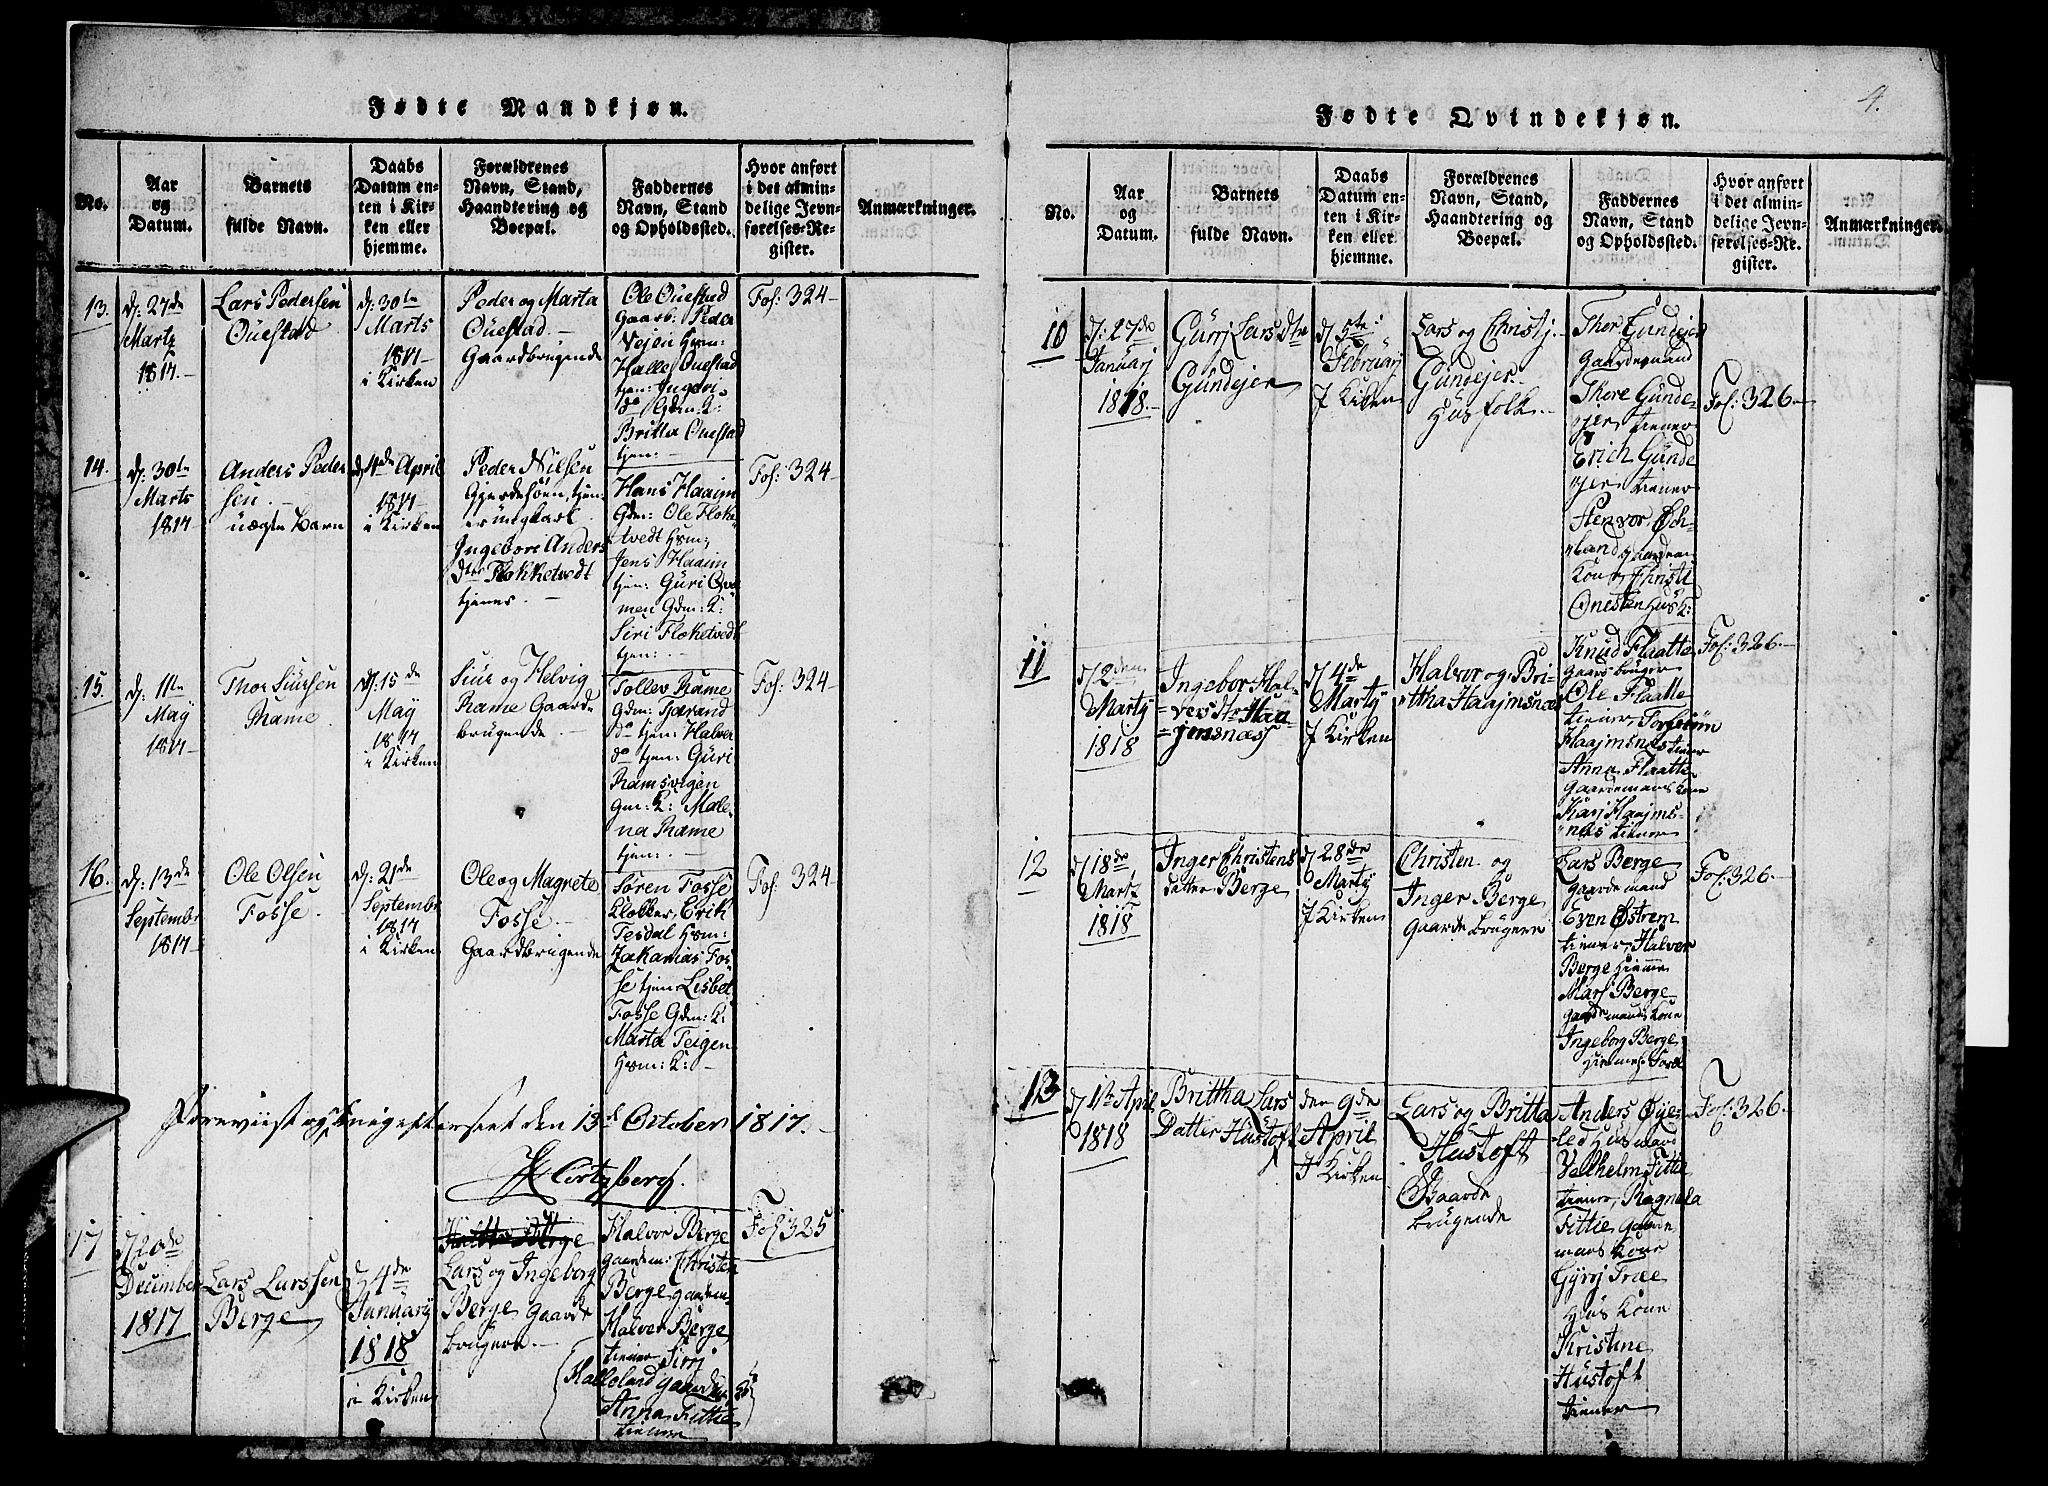 Fødte Mandkjøn.
No.
Aar
og
Datum.
Barnets
fulde Navn.
Daabs
Datum en-
ten i Kir-
ken eller
hjemme.
Forældrenes
Navn, Stand,
Haandtering og
Boepæl.
Faddernes
Navn, Stand
og Opholdssted.
Hvor anført
i det almin-
delige Jevn-
førelses-Re-
gister.
Anmærkninger.
13.
d: 27de
Martz
1817.
Lars Pedersen
Ouestad
d: 30te
Marts
1817
i Kirken
Peder og Marta
Ouestad.
Gaardbrugende
Ole Ouestad
Gaarb: Peder
Vojen Hsm:
Halle Ouestad
tjen: Ingebri
do Gdm: K:
Britta Ouestad
tjen:
Fol: 324
14.
d: 30te
Marts
1817
Anders Peder
sen.
uægte Barn
d 4de April
1817
i Kirken
Peder Nilsen
Gjerdesøen, tjen
er ungkarl
Ingebore Anders
dter Flokketvedt
tjener.
Hans Haaim
Gdm: Ole Floke
tvedt Hsm:
Jens Haaim
tjen: Guri Qve
men Gdm: K:
Siri Floketvedt
tjen:
Fol: 324
15.
d: 11te
May
1817
Thor Siursen
Rame
d: 15de
May
1817
i Kirken
Siur og Helvig
Rame Gaard
brugende.
Tollev Rame
Gdm: Tjærand
do tjen: Halver
do tjen: Guri
Ramsvigen
Gm: K: Male-
na Rame
tjen:
Fol: 324
16.
d: 13de
Septembr
1817
Ole Olsen
Fosse.
d: 21de
Septembr
1817
i Kirken
Ole og Magrete
Fosse.
Gaardbrugende
Søren Fosse
Klokker Erik
Tesdal Hsm:
Zakarias Fos
se tjen Lisbet
Fosse Gdm: K:
Marta Teigen
Hsm: K:
Fol: 324
Foreviist og igiennem efterseet den 13d October 1817.
Hertzberg.
17
d 20de
December
1817
Lars Larssen
Berge
d 4de
January
1818
i Kirken
Lars og Ingeborg
Berge Gaard
brugere.
Halvor Berge
gaardm: Christen
Berge gaardm
Halver Berge
tiener Sirrj
Halleland gaard
Anna Fittie
tiener
Fol 325
4.
Fødte Qvindekjøn.
No.
Aar
og
Datum.
Barnets
fulde Navn.
Daabs
Datum en-
ten i Kir-
ken eller
hjemme.
Forældrenes
Navn, Stand,
Haandtering og
Boepæl.
Faddernes
Navn, Stand
og Opholdssted.
Hvor anført
i det almin-
delige Jevn-
førelses-Re-
gister.
Anmærkninger.
10
d: 27de
Januarj
1818.
Gurrj Lars Dtr
Gundejer
d 5te
Februarj
J Kirken
Lars og Christj
Gundejer
Husfolk.
Thor Gundejer
Gaardemand
Thore Gunde-
jer tiener
Erich Gunde
jer tiener
Stenvor Øch-
land gaardm
Kone Christi
Onesten Huus K:
Fol: 326.
11
d 2den
Martz
1818
Ingebor Hal-
vers Dtr Haa
jmsnæs
d 4de
Marty
J Kirken
Halvor og Bri-
ttha Haajmsnæs
Knud Flaatte
Gaard bruger
Ole Flaatte
tiener Torbiøn
Haajmsnæs tiener
Anna Flaatte
Gaardemans kone
Karj Haajms-
næs tiener
Fol: 326.
12
d 18de
Martz
1818
Inger Christens
datter Berge
d 28de
Marty
J Kirken
Christen og
Inger Berge
Gaarde brugere
Lars Berge
Gaardemand
Even Østrem
tiener Halver
Berge hiemme
Marj Berge
gaardemands kone
Ingeborg Berge
Fol: 326.
13
d 1te April
1818
Brittha Lars
Datter Hustoft
den 9de
April
J Kirken
Lars og Britta
Hustoft
Gaarde
brugende
Anders Øye-
led Husmand
Velhelm Fittie
tiener, Ragnela
Fittie Gaarde
mans Kone
Gyrj Træe
Huus Kone
Kristine
Hustoft
tiener
Fol: 326.